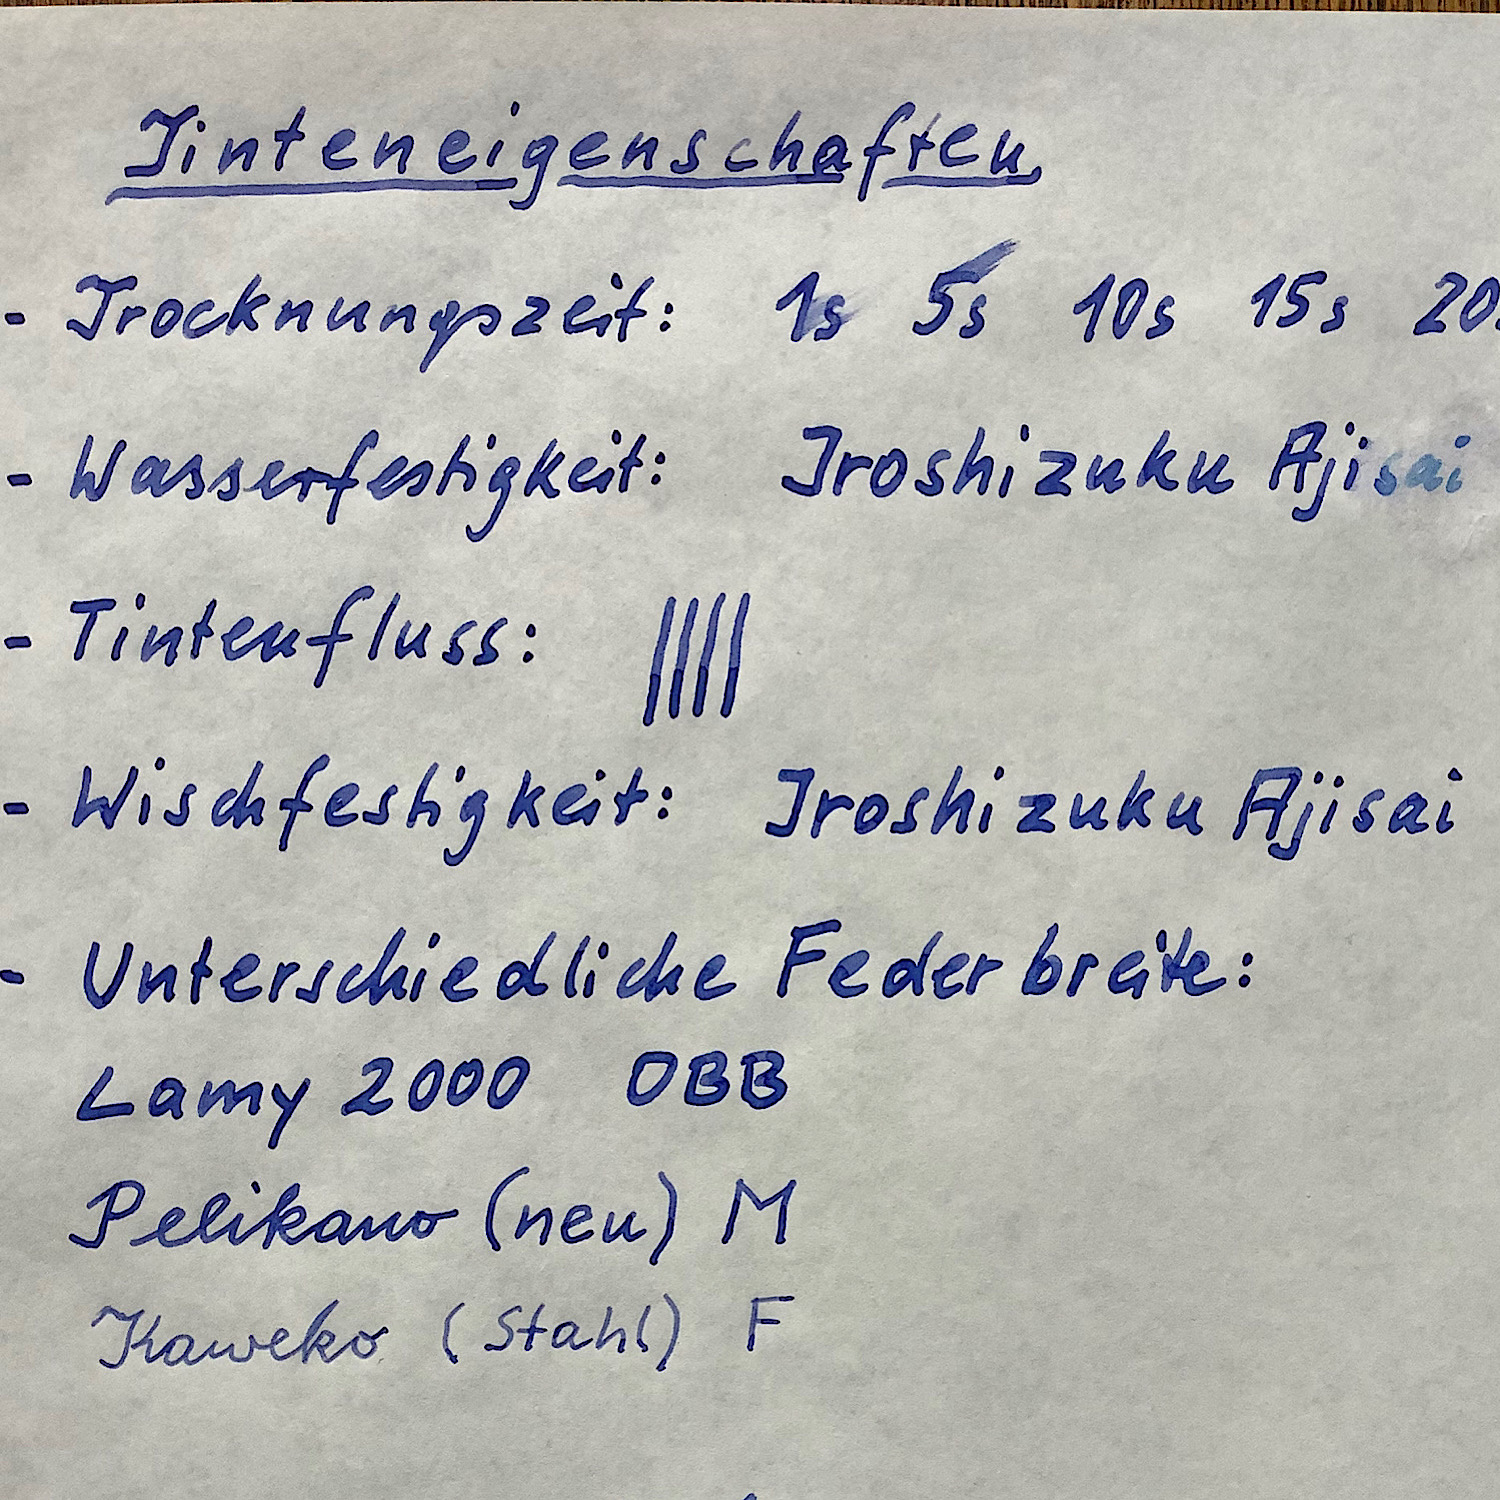 Tinteneigenschaften
- Trocknungszeit: 1s 5s 10s 15s 20s
- Wasserfestigkeit: Iroshizuku Ajisai
- Tintenfluss:
- Wischfestigkeit: Iroshizuku Ajisai
- Unterschiedliche Federbreite:
Lamy 2000 OBB
Pelikano (neu) M
Kaweko (Stahl) F